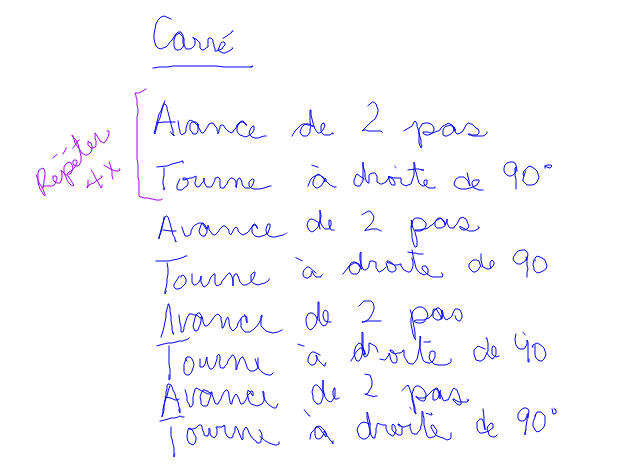 Carré
Répéter
4x
Avance de 2 pas
Tourne à droite de 90°
Avance de 2 pas
Tourne à droite de 90
Avance de 2 pas
Tourne à droite de 90
Avance de 2 pas
Tourne à droite de 90°